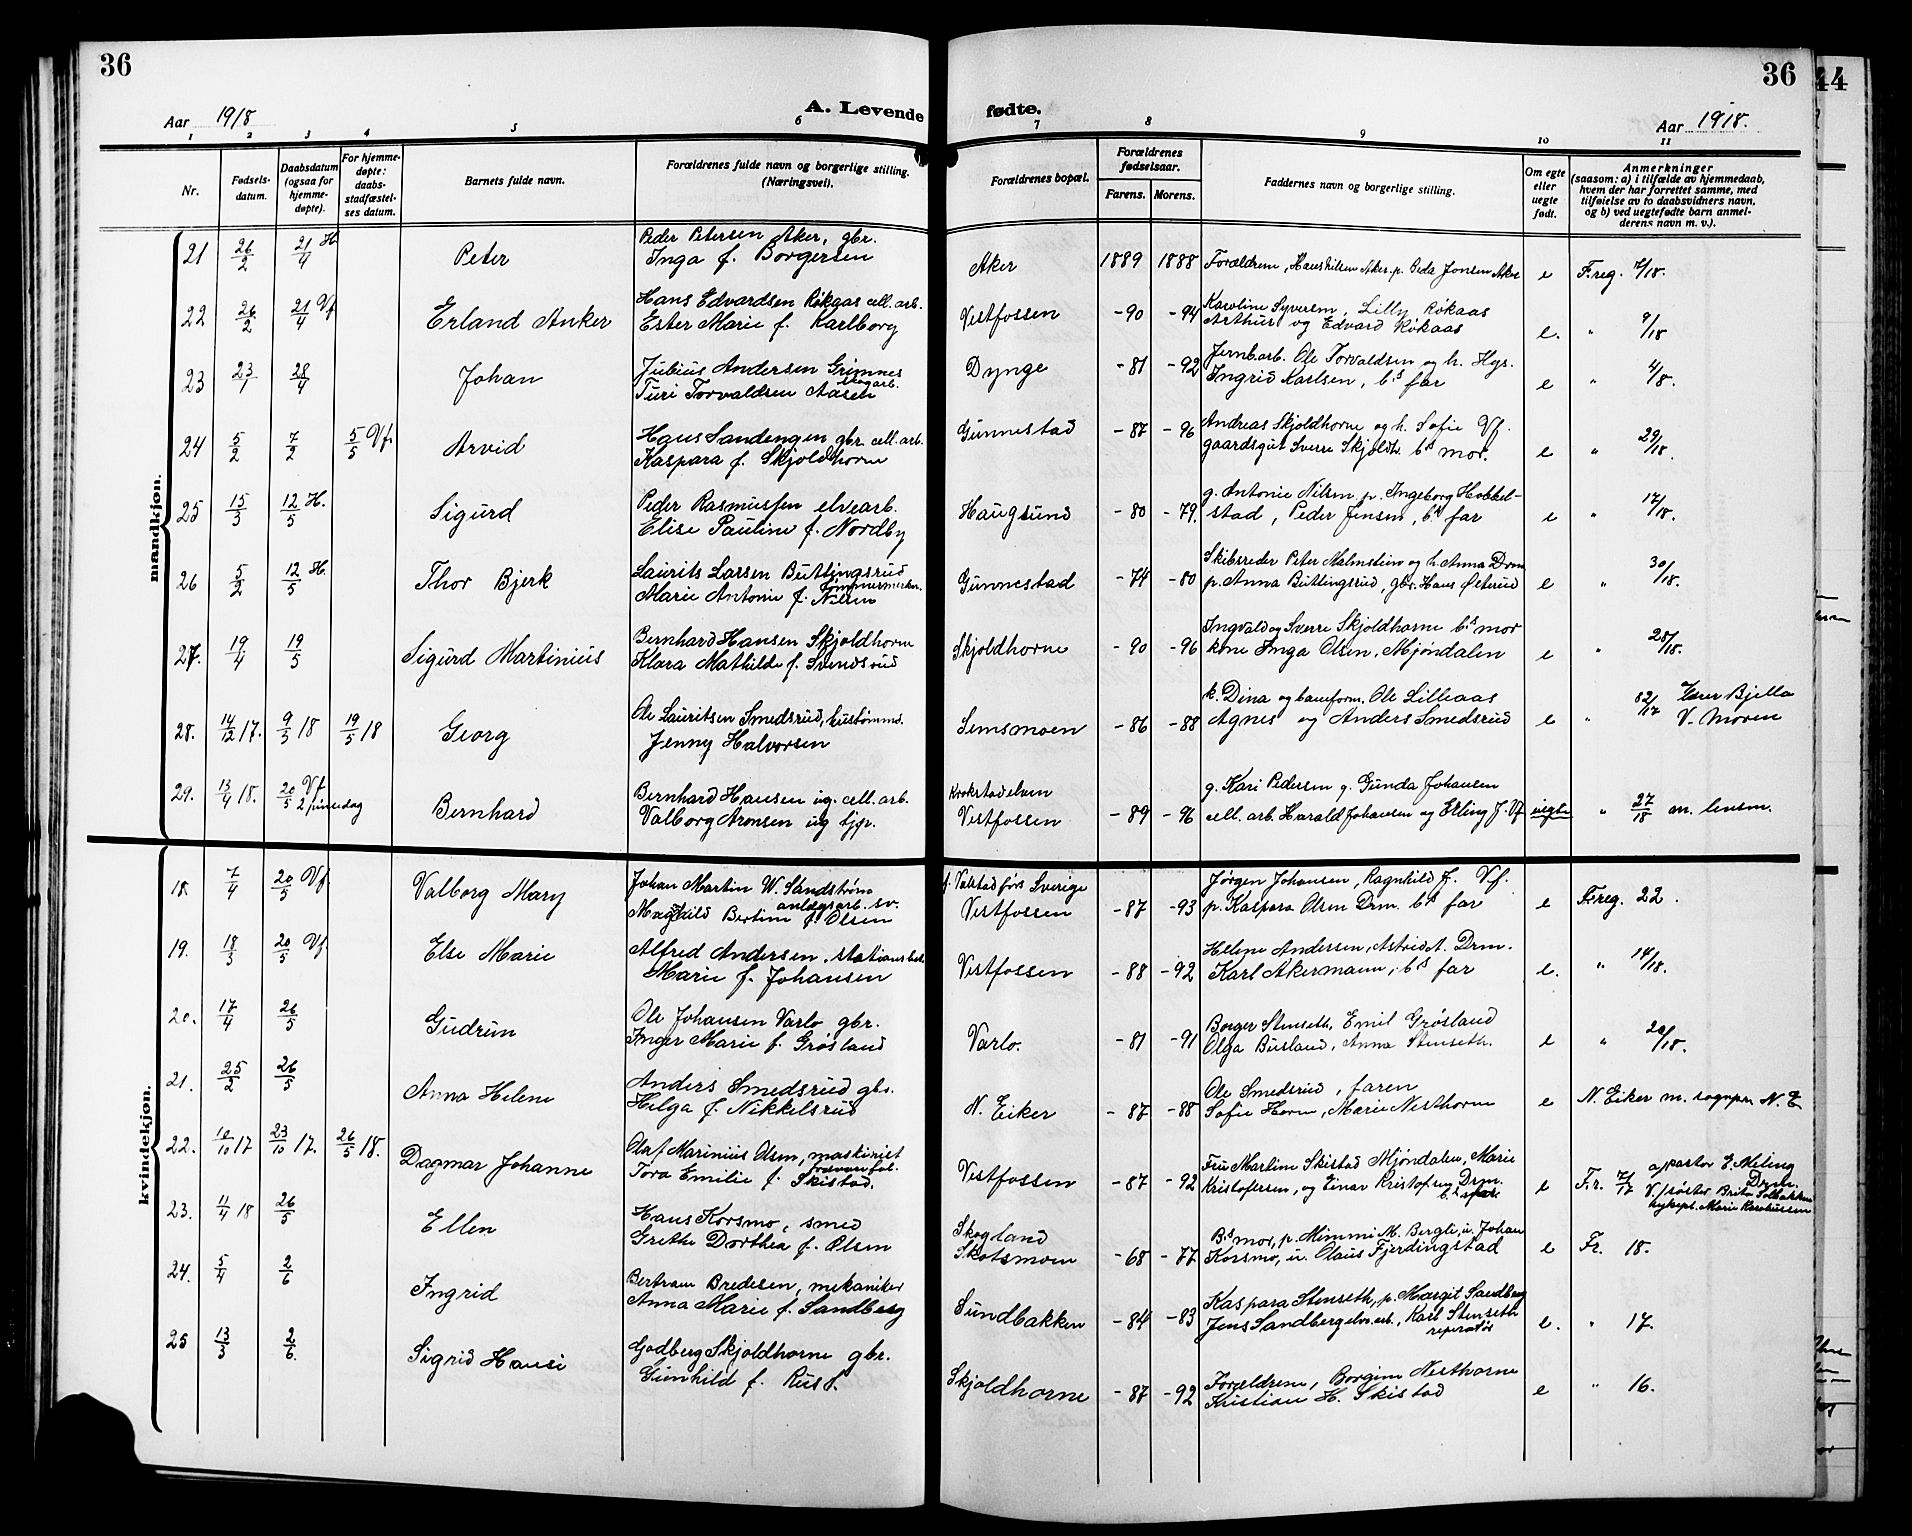 36
36
44
Aar 1918
A. Levende fødte.
Aar 1918.
1 2 3 4 5 6 7 8 9 10 11
Nr.
Fødsels-
datum.
Daabsdatum
(ogsaa for
hjemme-
døpte).
For hjemme-
døpte:
daabs-
stadfæstel-
ses datum.
Barnets fulde navn.
Forældrenes fulde navn og borgerlige stilling.
(Næringsvei).
Forældrenes bopæl.
Forældrenes
fødselsaar.
Farens. Morens.
Faddernes navn og borgerlige stilling.
Om egte
eller
uegte
født.
Anmerkninger
(saasom: a) i tilfælde av hjemmedaab,
hvem der har forrettet samme, med
tilføielse av to daabsvidners navn,
og b) ved uegtefødte barn anmel-
derens navn m. v.).
mandkjøn.
21 26/2 21/4 H Peter
Peder Petersen Aker, gbr.
Inga f. Borgersen
Aker 1889 1888
Forældrene, Hans Nilsen Aker. p. Beda Jonsen Aker
e F.reg. 7/18.
22 26/2 21/4 Vf Erland Anker
Hans Edvardsen Røkaas cell. arb.
Ester Marie f. Karlborg
Vestfossen -90 -94
Karoline Syversen, Lilly Røkaas
Arthur og Edvard Røkaas
e. " 9/18
23 23/1 28/4 Johan
Julius Andersen Grimnes
skogarb.
Turi Torvaldsen Aasen
Dynge -81 -92
Jernb.arb. Ole Torvaldsen og h. Hgs.
Ingrid Karlsen, b.s far
e " 4/18.
24 5/2 7/2 5/5 Vf. Arvid
Hans Sandengen gbr. cell. arb.
Kaspara f. Skjoldhorne
Gunnestad -87 -96
Andreas Skjoldhorne og h. Sofie Vf.
gaardsgut Sverre Skjoldh. b.s mor.
e " 29/18.
25 15/3 12/5 H. Sigurd
Peder Rasmussen elvearb.
Elise Pauline f. Nordby
Haugsund -80 -79.
g. Antonie Nilsen p. Ingeborg Hobbel-
stad, Peder Jensen, b.s far
e " 17/18.
26 5/2 12/5 H. Thor Bjerk
Laurits Larsen Buttingsrud
tømmermerker.
Marie Antonie f. Nilsen
Gunnestad -74 -80
Skibsreder Peter Malmstein og h. Anna Drm
p. Anna Buttingsrud, gbr. Hans Østerud
e " 30/18.
27. 19/4 19/5 Sigurd Martinius
Bernhard Hansen Skjoldhorne
Klara Mathilde f. Svendsrud
Skjoldhorne -90 -96
Ingvald og Sverre Skjoldhorne b.s mor
kone Inga Olsen, Mjøndalen
e " 28/18.
28. 14/12 17. 9/3 18 19/5 18 Georg
Ole Lauritsen Smedsrud, hustømmr.
Jenny Halvorsen
Semsmoen -86 -88
k. Dina og baneform. Ole Lilleaas
Agnes og Anders Smedsrud
e " 82/17 Lærer Bjella
V. Moren
29. 13/4 18. 20/5 Vf. 2 pinsedag Bernhard
Bernhard Hansen ug. cell. arb.
Valborg Aronsen ug tjpr.
Krokstadelven
Vestfossen -89 -96
g. Kari Pedersen g. Gunda Johansen
cell. arb. Harald Johansen og Erling J. Vf
uegte " 27/18 an. lensm.
kvindekjøn.
18. 7/4 20/5 Vf. Valborg Mary
Johan Martin W. Sandstrøm
anlægsarb. sv.
Maghild Bertine f. Olsen
f. Valstad fors Sverige
Vestfossen -87 -93
Jørgen Johansen, Ragnhild J. Vf.
p. Kaspara Olsen Drm. b.s far
e F.reg. 22.
19. 18/3 20/5 Vf Else Marie
Alfred Andersen, stationsbet.
Marie f. Johansen
Vestfossen -88 -92
Helene Andersen, Astrid A. Drm.
Karl Akermann, b.s far
e. " 14/18.
20. 17/4 26/5 Gudrun
Ole Johansen Varlo gbr.
Inger Marie f. Grøsland
Varlo. -81 -91
Borger Stenseth, Emil Grøsland
Olga Busland, Anna Stenseth.
e " 20/18.
21. 25/2 26/5 Anna Helene
Anders Smedsrud gbr.
Helga f. Nikkelsrud
N. Eiker -87 -88
Ole Smedsrud, faren
Sofie Horn, Marie Nesthorne
e N. Eiker m. sognepr. N. E
22. 10/10 17 23/10 17. 26/5 18. Dagmar Johanne
Olaf Marinius Olsen, maskinist
Tora Emilie f. Skistad.
Vestfossen -87 -92
Fru Martine Skistad Mjøndalen, Marie
Kristofersen, og Einar Kristofsen Drm.
b.s far
e Fr. 7/17 a) pastor E. Meling
Drm.
V. frøster Brita Solbakken
sykepl. Marie Rasmussen
23. 11/4 18 26/5 Ellen
Hans Korsmo, smed
Grethe Dorthea f. Olsen
Skogland
Skotsmoen -68 -77
B.s mor, p. Mimmi M. Bergli, u. Johan
Korsmo, u. Olaus Fjerdingstad
e Fr. 18.
24. 5/4 2/6 Ingrid
Bertram Bredesen, mekaniker
Anna Marie f. Sandberg
Sundbakken -84 -83
Kaspara Stenseth, p. Margit Sandberg
Jens Sandberg elv. arb., Karl Stenseth
reparatør
e. " 17.
25 13/3 2/6. Sigrid Hansi
Godberg Skjoldhorne gbr.
Gunhild f. Rust.
Skjoldhorne -87 -92
Forældrene, Borgine Nesthorne
Kristian H. Skistad
e " 16.